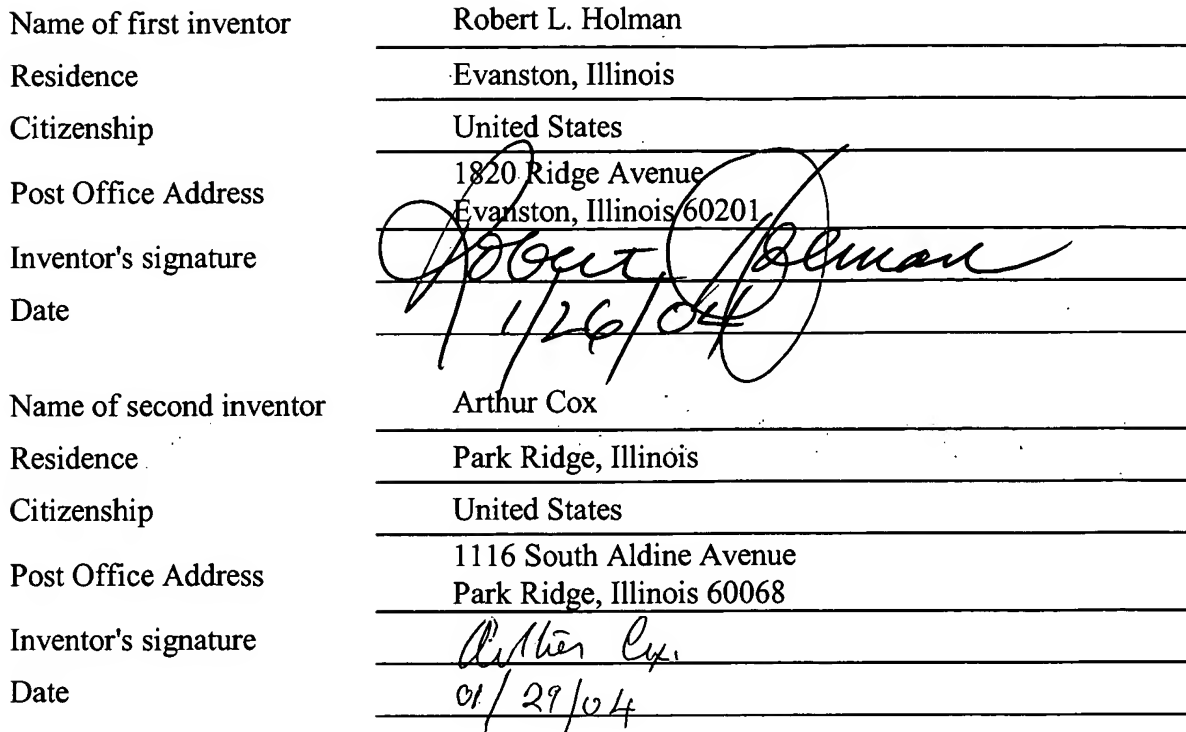 Name of first inventor Robert L. Holman
Residence Evanston, Illinois
Citizenship United States
Post Office Address 1820 Ridge Avenue
Evanston, Illinois 60201
Inventor's signature Robert Holman
Date 1/26/04
Name of second inventor Arthur Cox
Residence Park Ridge, Illinois
Citizenship United States
Post Office Address 1116 South Aldine Avenue
Park Ridge, Illinois 60068
Inventor's signature Arthur Cox.
Date 01/29/04